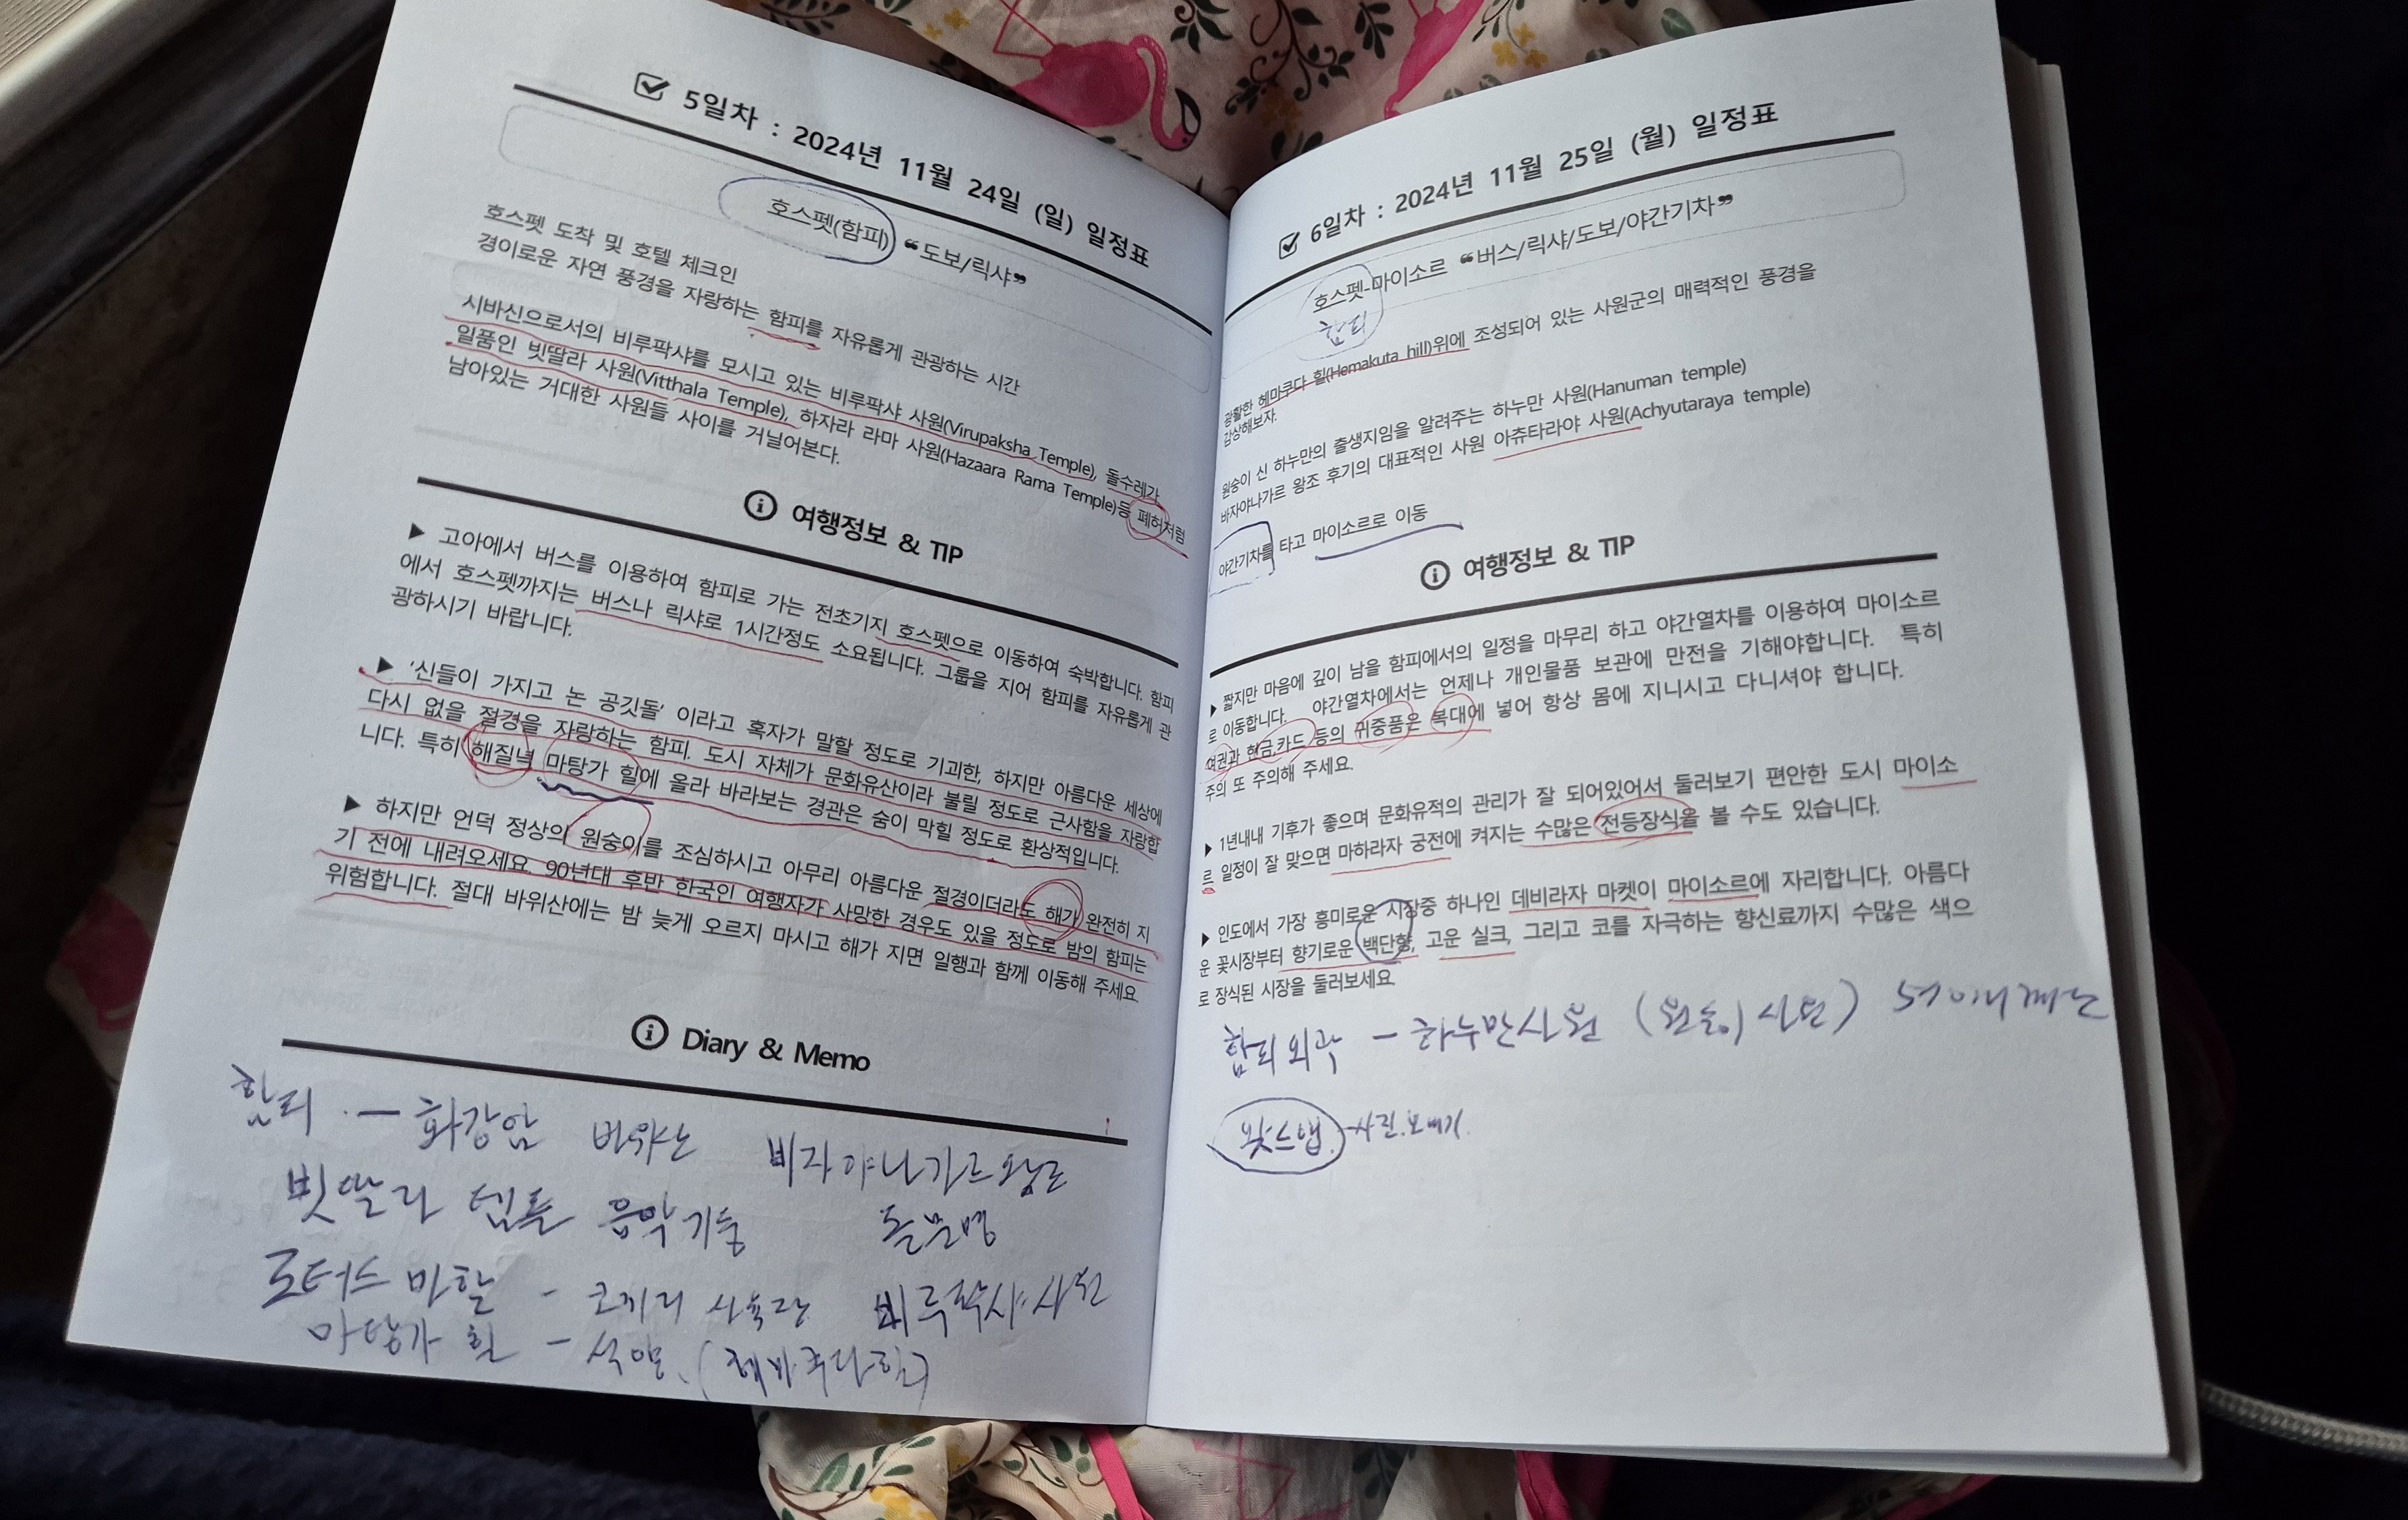 5일차 : 2024년 11월 24일 (일) 일정표
호스펫(함피) ❝도보/릭샤❞
호스펫 도착 및 호텔 체크인
경이로운 자연 풍경을 자랑하는 함피를 자유롭게 관광하는 시간
시바신으로서의 비루팍샤를 모시고 있는 비루팍샤 사원(Virupaksha Temple), 돌수레가
일품인 빗딸라 사원(Vitthala Temple), 하자라 라마 사원(Hazaara Rama Temple)등 폐허처럼
남아있는 거대한 사원들 사이를 거닐어본다.
여행정보 & TIP
▶ 고아에서 버스를 이용하여 함피로 가는 전초기지 호스펫으로 이동하여 숙박합니다. 함피
에서 호스펫까지는 버스나 릭샤로 1시간정도 소요됩니다. 그룹을 지어 함피를 자유롭게 관
광하시기 바랍니다.
▶ '신들이 가지고 논 공깃돌' 이라고 혹자가 말할 정도로 기괴한, 하지만 아름다운 세상에
다시 없을 절경을 자랑하는 함피. 도시 자체가 문화유산이라 불릴 정도로 근사함을 자랑합
니다. 특히 해질녘 마탕가 힐에 올라 바라보는 경관은 숨이 막힐 정도로 환상적입니다.
▶ 하지만 언덕 정상의 원숭이를 조심하시고 아무리 아름다운 절경이더라도 해가 완전히 지
기 전에 내려오세요. 90년대 후반 한국인 여행자가 사망한 경우도 있을 정도로 밤의 함피는
위험합니다. 절대 바위산에는 밤 늦게 오르지 마시고 해가 지면 일행과 함께 이동해 주세요.
Diary & Memo
함피 - 화강암 바위산 비자야나가르왕조
빗딸라 템플 음악기둥 돌문명
로터스 마할 - 코끼리 사육장 비루팍샤 사원
마탕가 힐 - 석양 (헤마쿠타힐)
6일차 : 2024년 11월 25일 (월) 일정표
호스펫-마이소르 ❝버스/릭샤/도보/야간기차❞
함피
광활한 헤마쿠다 힐(Hemakuta hill)위에 조성되어 있는 사원군의 매력적인 풍경을
감상해보자.
원숭이 신 하누만의 출생지임을 알려주는 하누만 사원(Hanuman temple)
바자야나가르 왕조 후기의 대표적인 사원 아츄타라야 사원(Achyutaraya temple)
야간기차를 타고 마이소르로 이동
여행정보 & TIP
▶ 짧지만 마음에 깊이 남을 함피에서의 일정을 마무리 하고 야간열차를 이용하여 마이소르
로 이동합니다. 야간열차에서는 언제나 개인물품 보관에 만전을 기해야합니다. 특히
여권과 현금,카드 등의 귀중품은 복대에 넣어 항상 몸에 지니시고 다니셔야 합니다.
주의 또 주의해 주세요.
▶ 1년내내 기후가 좋으며 문화유적의 관리가 잘 되어있어서 둘러보기 편안한 도시 마이소
르 일정이 잘 맞으면 마하라자 궁전에 켜지는 수많은 전등장식을 볼 수도 있습니다.
▶ 인도에서 가장 흥미로운 시장중 하나인 데비라자 마켓이 마이소르에 자리합니다. 아름다
운 꽃시장부터 향기로운 백단향, 고운 실크, 그리고 코를 자극하는 향신료까지 수많은 색으
로 장식된 시장을 둘러보세요.
함피 외곽 - 하누만사원 (원숭이 사원)
왓스앱 - 사진 보내기.